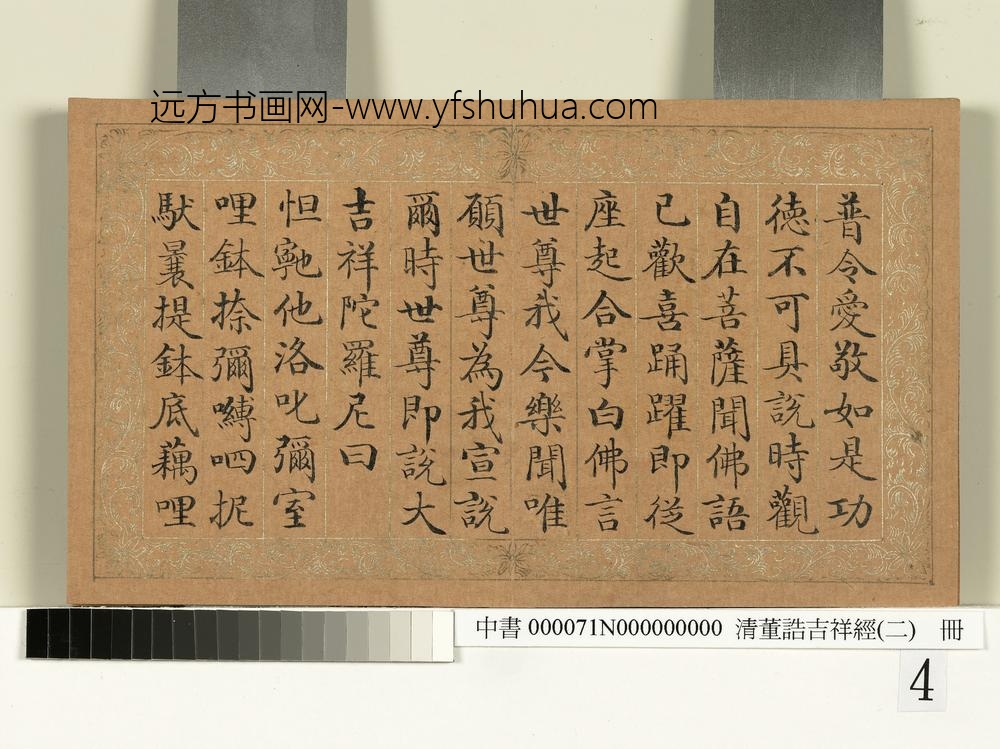 远方书画网-www.yfshuhua.com
普令愛敬如是功
徳不可具說時觀
自在菩薩聞佛語
已歡喜踊躍即從
座起合掌白佛言
世尊我今樂聞唯
願世尊為我宣說
爾時世尊即說大
吉祥陀羅尼曰
怛寧他洛叱彌室
哩鉢捺彌嚩呬抳
馱曩提鉢底藕哩
中書 000071N000000000 清董誥吉祥經(二) 冊
4